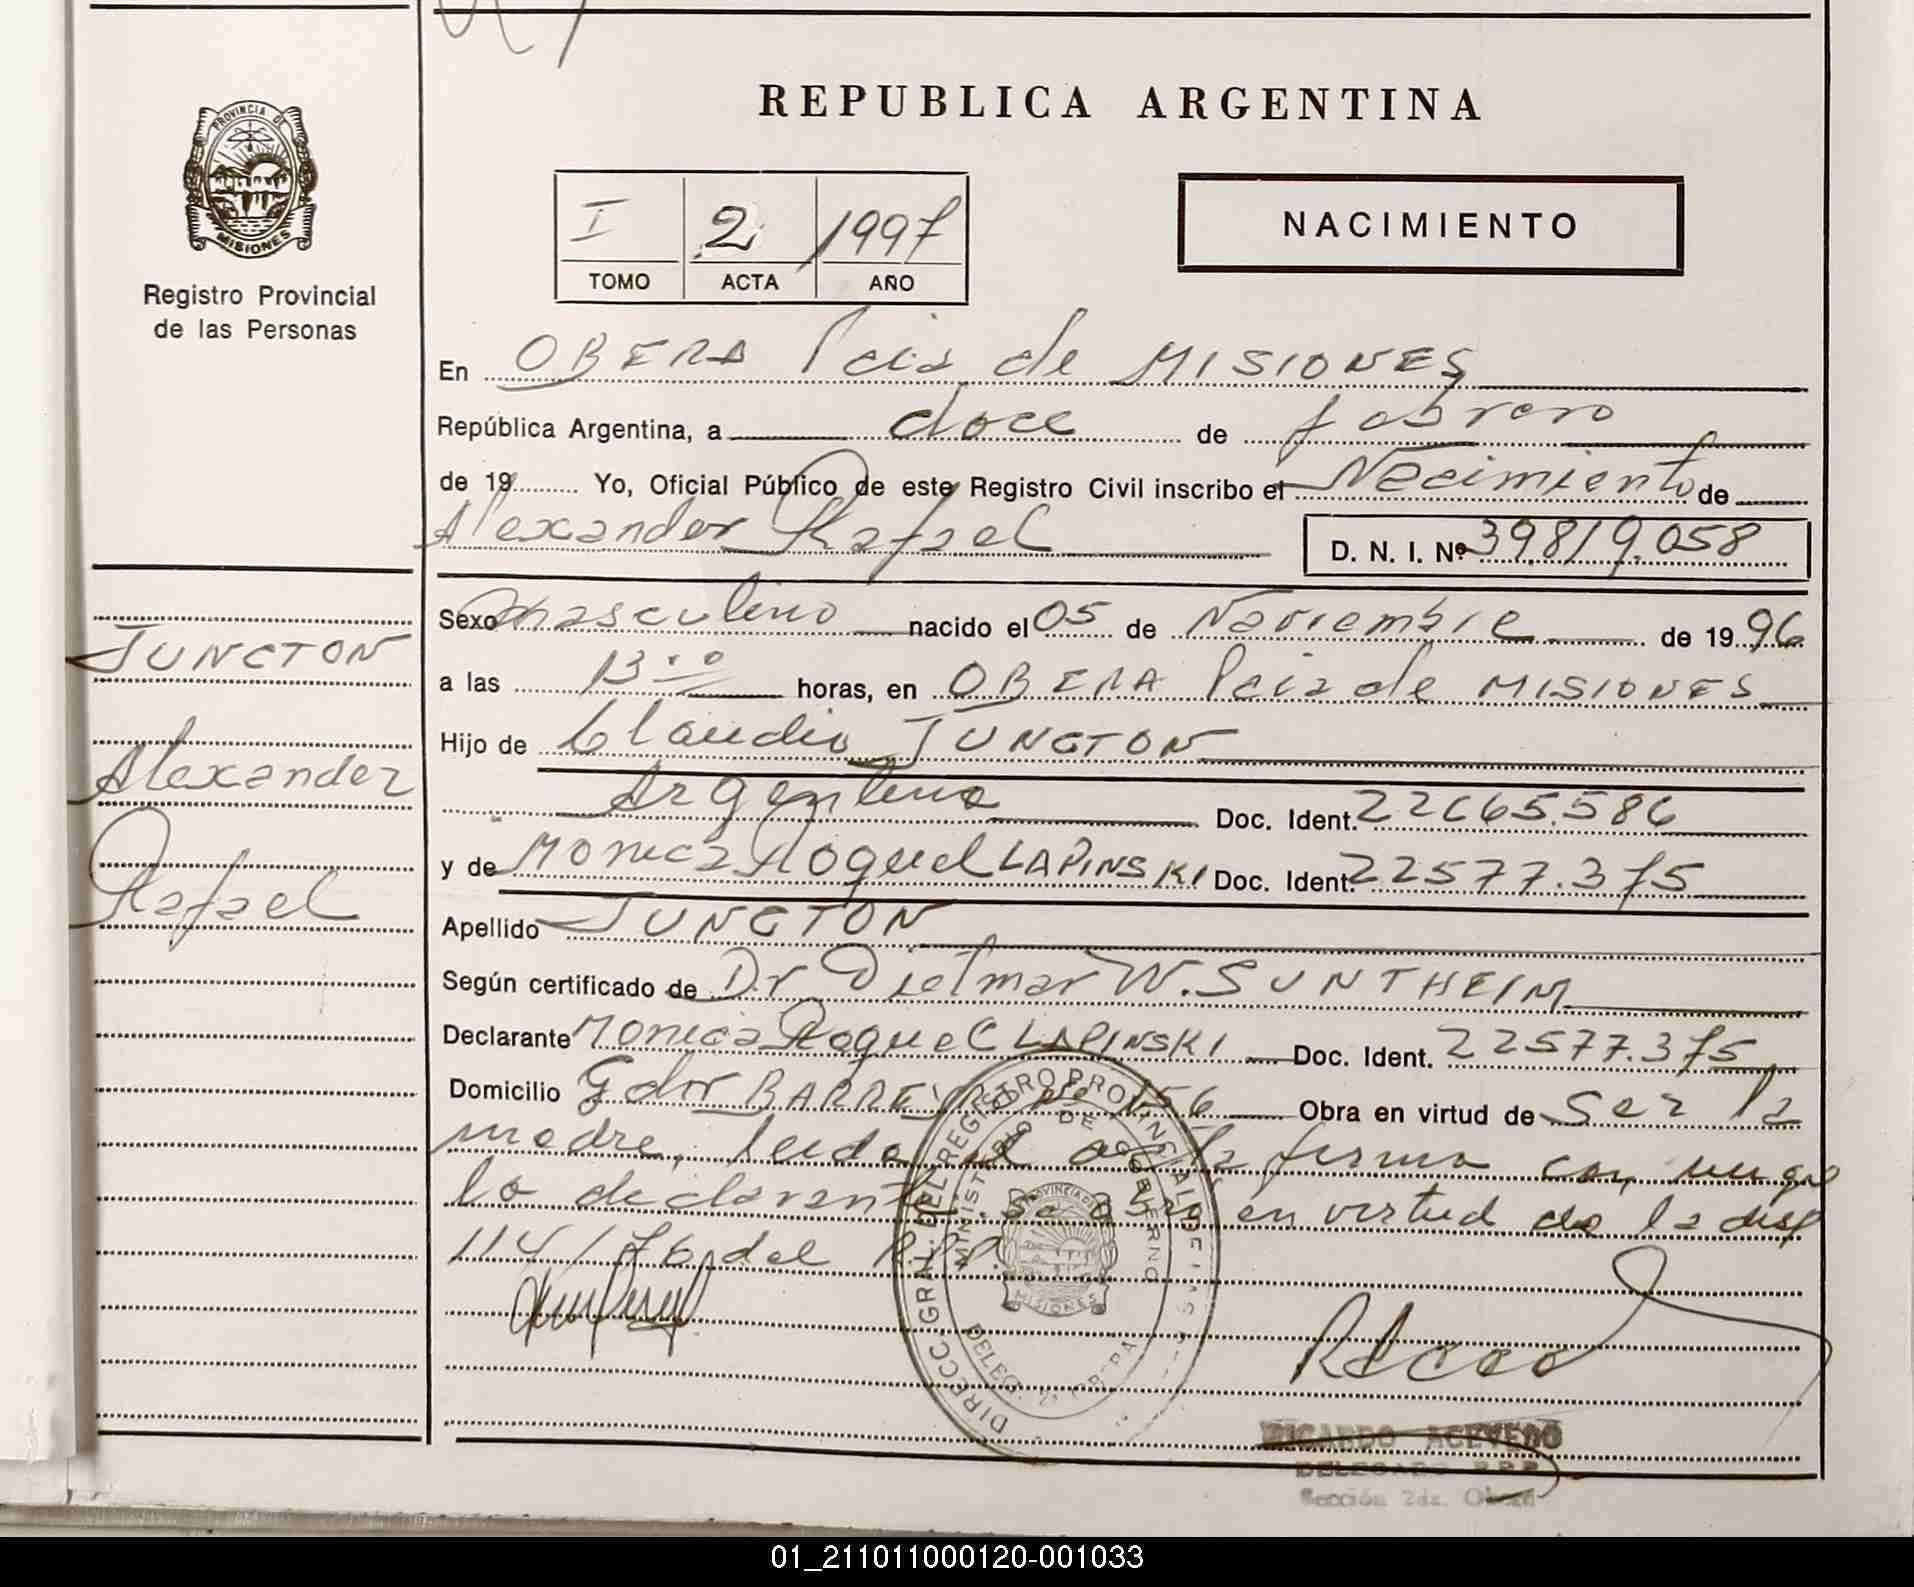 PROVINCIA DE
MISIONES
Registro Provincial
de las Personas
JUNGTON
Alexander
Rafael
REPUBLICA ARGENTINA
I 2 1997
TOMO ACTA AÑO
NACIMIENTO
En OBERA Pcia de MISIONES
República Argentina, a doce de febrero
de 19 Yo, Oficial Público de este Registro Civil inscribo el Nacimiento de
Alexander Rafael D. N. I. Nº 39.819.058
Sexo Masculino nacido el 05 de Noviembre de 1996
a las 13 horas, en OBERA Pcia de MISIONES
Hijo de Claudio JUNGTON
Argentino Doc. Ident. 22665.586
y de Monica Roquel LAPINSKI Doc. Ident. 22577.375
Apellido JUNGTON
Según certificado de Dr Dietmar W. SUNTHEIM
Declarante Monica Roquel LAPINSKI Doc. Ident. 22577.375
Domicilio Gdor BARREYRO 156 Obra en virtud de ser la
madre, leida el acta firma con migo
la declarante. Se obra en virtud de la disp
114/76 del R.P.P.
DIRECC. GRAL. DEL REGISTRO PROVINCIAL DE LAS
MINISTERIO DE GOBIERNO
PROVINCIA DE
MISIONES
DELEG. 2ª OBERA
RICARDO ACEVEDO
DELEGADO R.P.P.
Sección 2da. Oberá
01_211011000120-001033